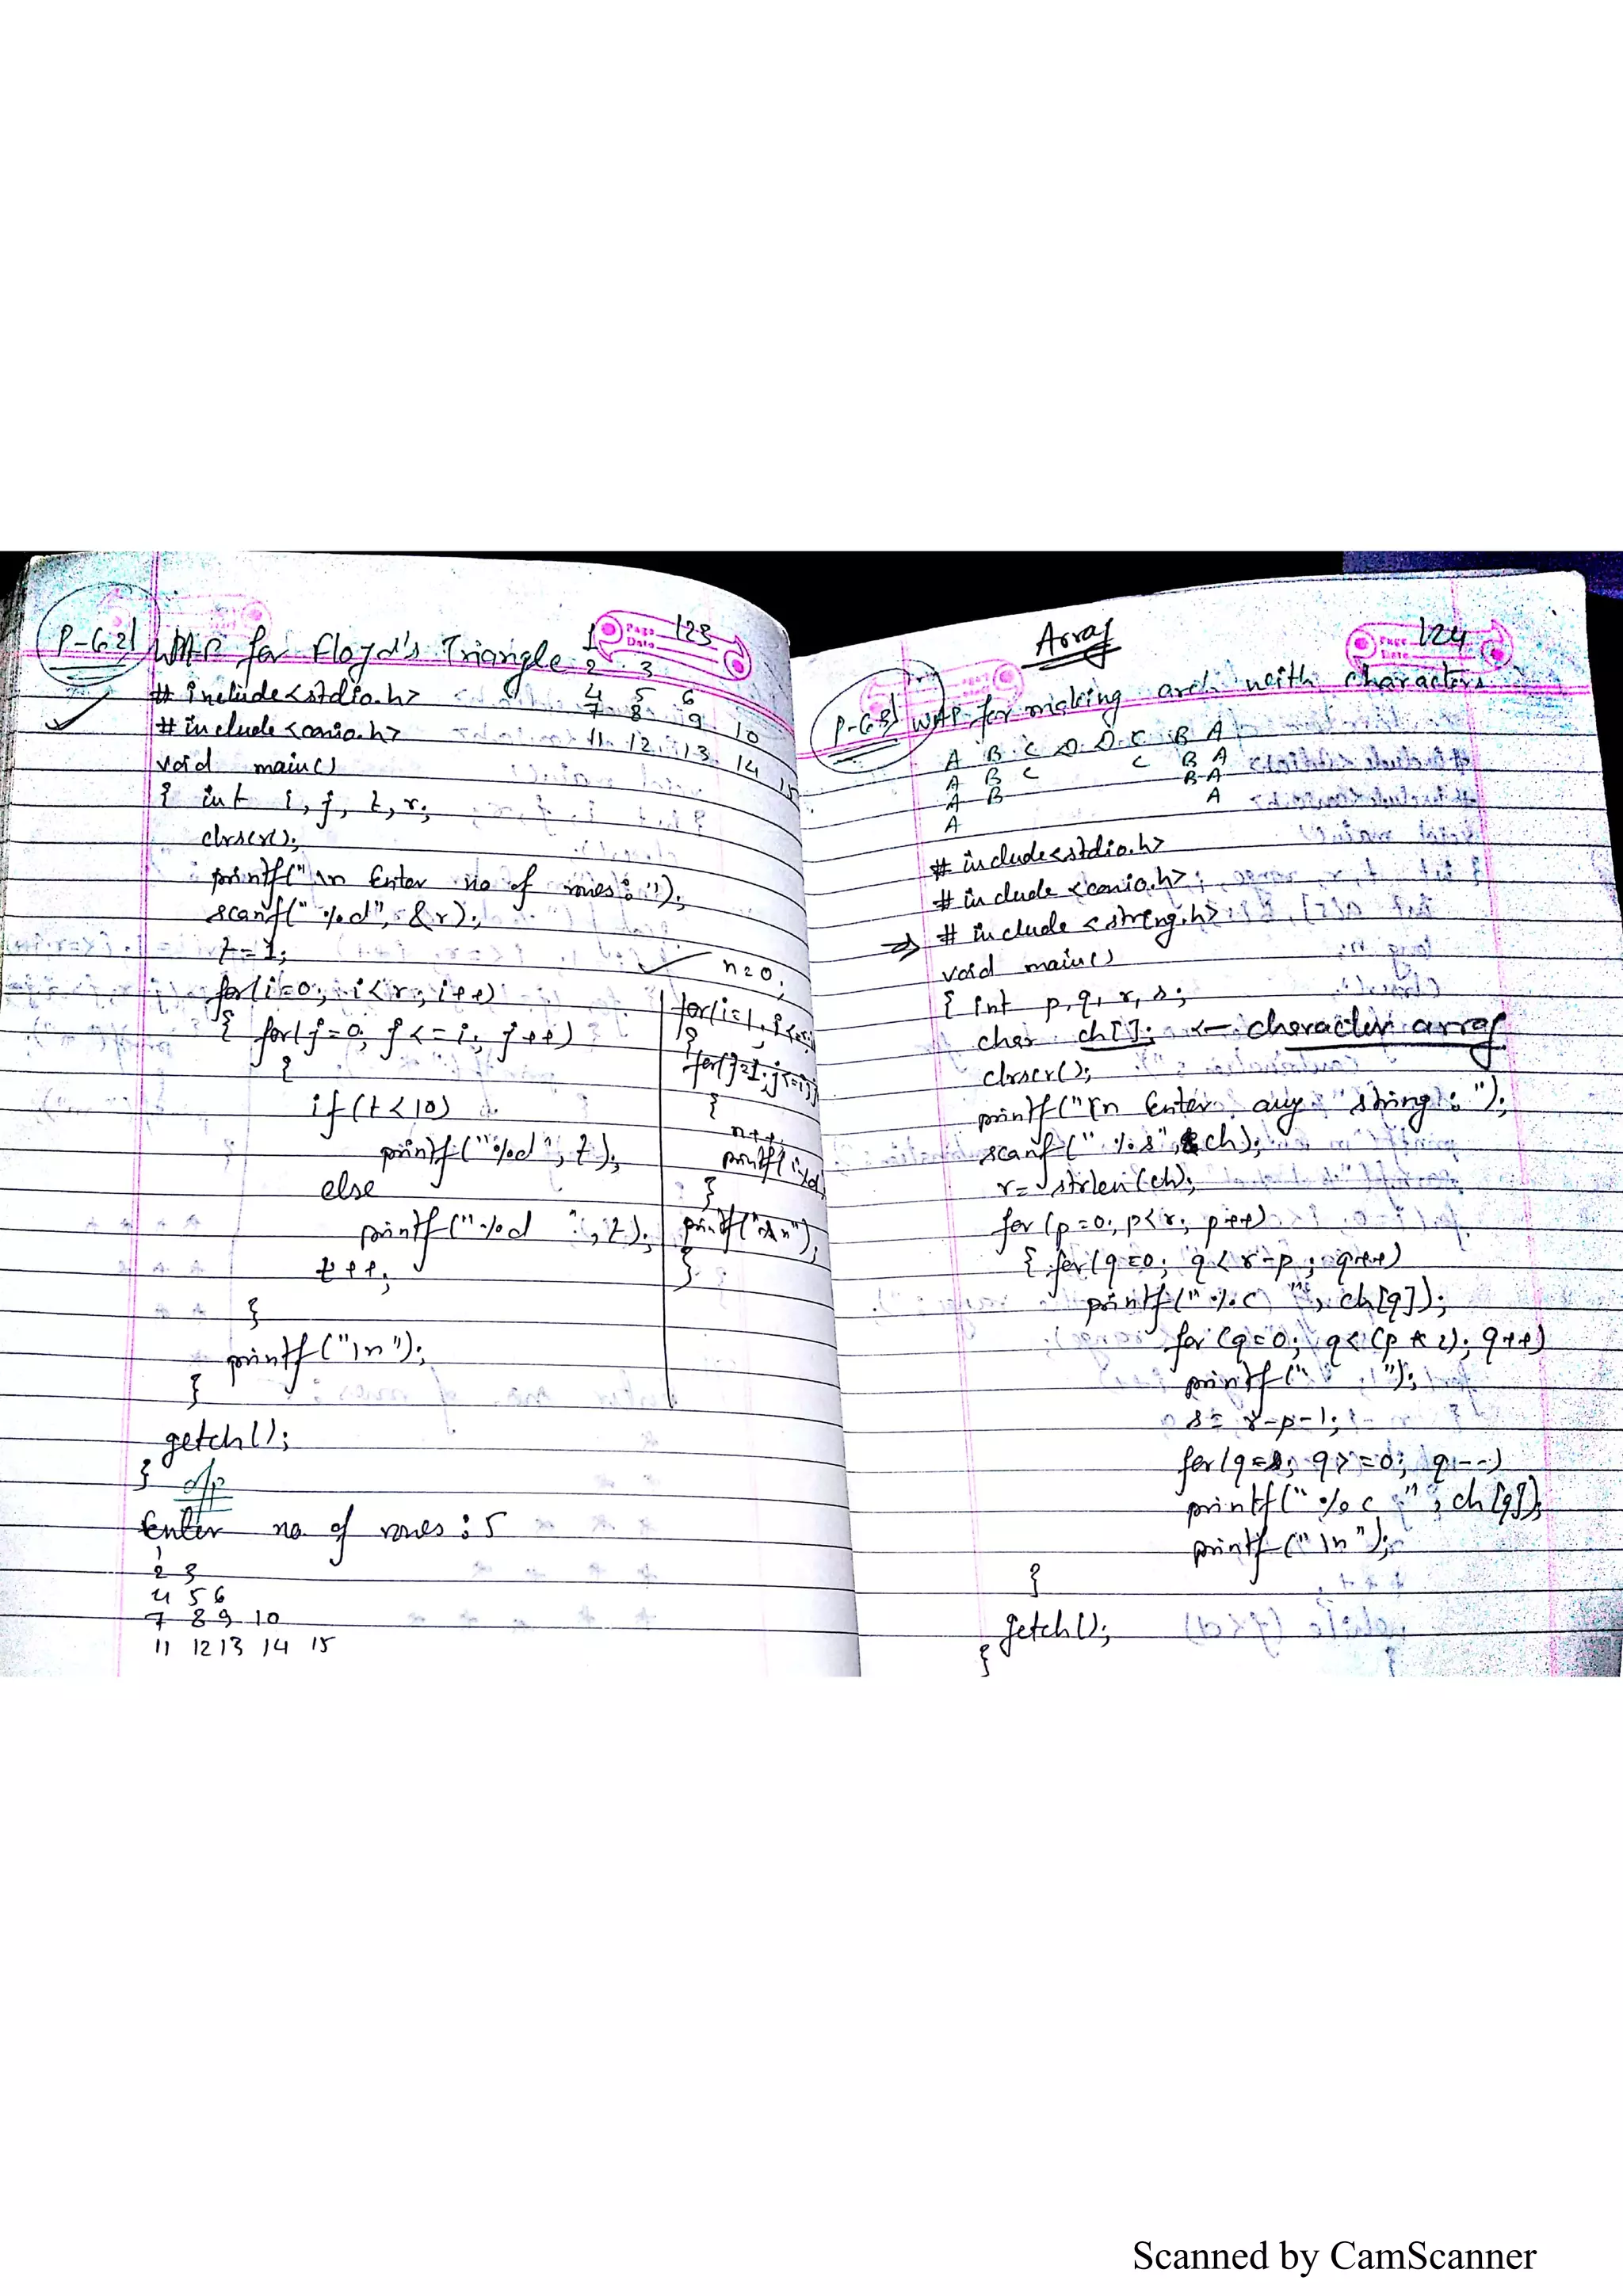 P-62) WAP for Floyd's Triangle
Page 123
Date
1
2 3
4 5 6
7 8 9 10
11 12 13 14 15
#include<stdio.h>
#include<conio.h>
void main()
{ int i, j, t, r;
clrscr();
printf("\n Enter no of rows: ");
scanf("%d", &r);
t=1;
for(i=0; i<r; i++)
{ for(j=0; j<=i; j++)
{
if(t<10)
printf("%d ", t);
else
printf("%d ", t);
t++;
}
printf("\n");
}
getch();
}
n=0;
for(i=1; i<=r;
{
for(j=1; j<=i;j
{
n++;
printf(%d,
}
printf("\n");
}
O/p
Enter no of rows: 5
1
2 3
4 5 6
7 8 9 10
11 12 13 14 15
Array
Page 124
Date
P-63) WAP for making arch with characters
A B C D D C B A
A B C C B A
A B B A
A A
#include<stdio.h>
#include <conio.h>
=> #include <string.h>
void main()
{ int p, q, r, s;
char ch[]; <- character array
clrscr();
printf("\n Enter any string: ");
scanf("%s", &ch);
r= strlen(ch);
for (p=0; p<r; p++)
{ for(q=0; q<r-p; q++)
printf("%c ", ch[q]);
for(q=0; q<(p*2); q++)
printf(" ");
s= r-p-1;
for(q=s; q>=0; q--)
printf("%c ", ch[q]);
printf("\n");
}
getch();
}
Scanned by CamScanner